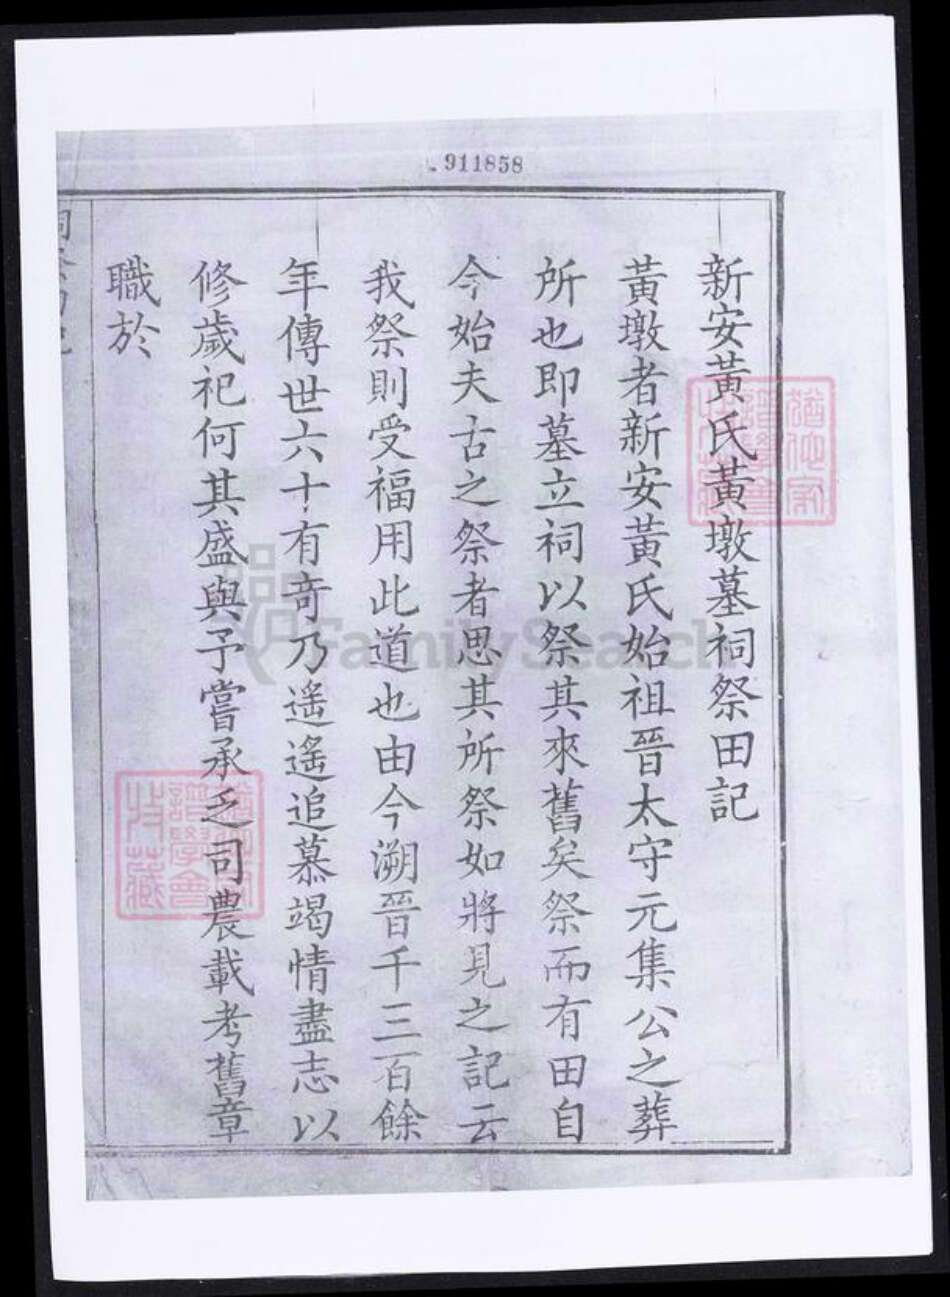 911858
新安黃氏黃墩墓祠祭田記
黃墩者新安黃氏始祖晉太守元集公之葬
所也即墓立祠以祭其來舊矣祭而有田自
今始夫古之祭者思其所祭如將見之記云
我祭則受福用此道也由今溯晉千三百餘
年傳世六十有奇乃遙遙追慕竭情盡志以
修歲祀何其盛與予嘗承乏司農載考舊章
職於
FamilySearch